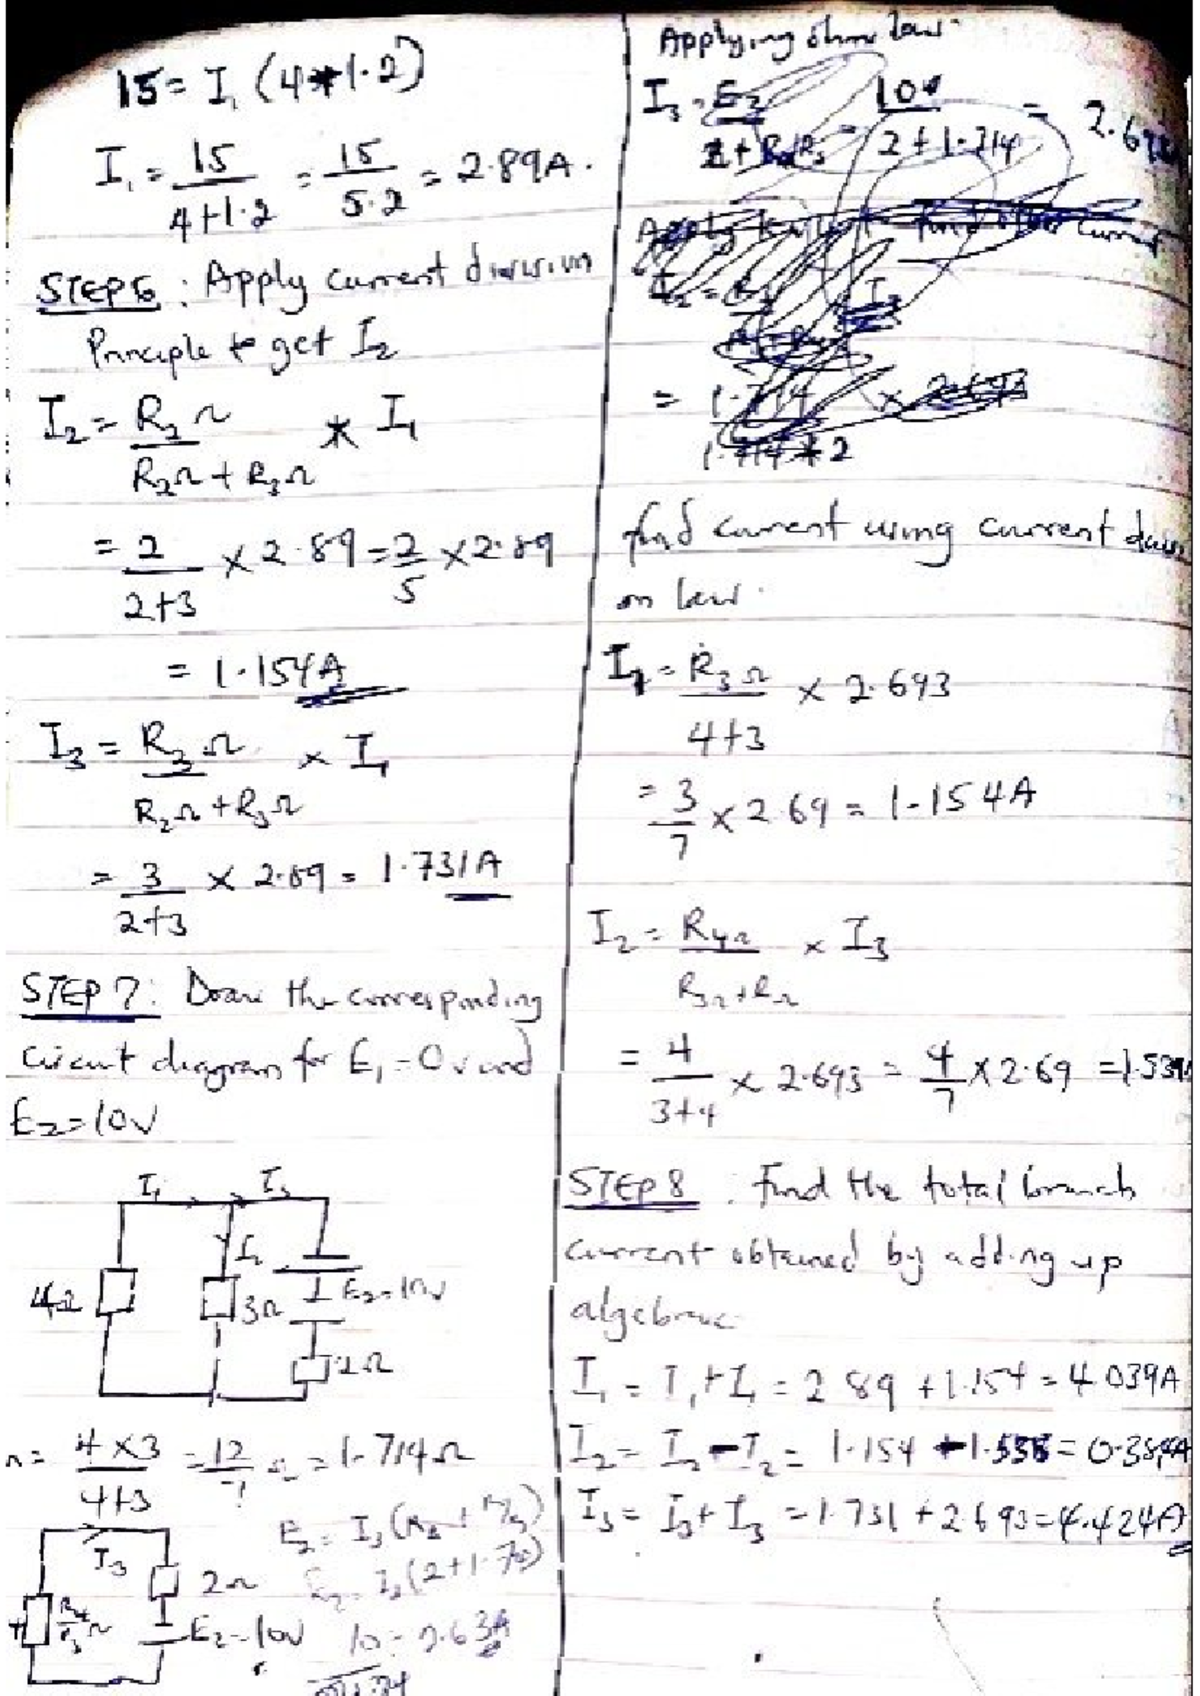 15 = I₁ (4+1.2)
I₁ = 15/(4+1.2) = 15/5.2 = 2.89A.
STEP 6 : Apply current division
Principle to get I₂
I₂ = R₂Ω/(R₂Ω + R₃Ω) * I₁
= 2/(2+3) × 2.89 = 2/5 × 2.89
= 1.154A
I₃ = R₃Ω/(R₂Ω + R₃Ω) × I₁
= 3/(2+3) × 2.89 = 1.731A
STEP 7 : Draw the corresponding
circuit diagram for E₁ = 0v and
E₂ = 10v
I₁ I₃
I₂
4Ω 3Ω E₂ = 10v
2Ω
= (4×3)/(4+3) = 12/7 Ω = 1.714Ω
I₃
2Ω
E₂ = 10v
10 = 2.63A
Applying ohms law
I₃ = 10v/(2+1.714) = 2.6
find current using current
on law.
I₁ = R₃Ω/(4+3) × 2.693
= 3/7 × 2.69 = 1.154A
I₂ = R₄Ω/(R₃Ω + RΩ) × I₃
= 4/(3+4) × 2.693 = 4/7 × 2.69 = 1.539
STEP 8 : Find the total branch
current obtained by adding up
I₁ = I₁ + I₁ = 2.89 + 1.154 = 4.039A
I₂ = I₂ - I₂ = 1.154 - 1.538 = 0.384A
I₃ = I₃ + I₃ = 1.731 + 2.693 = 4.424A